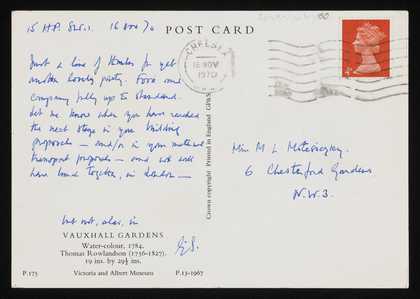 15 H.P. S.W.1. 16 Nov 70
POST CARD
CHELSEA
16 NOV
1970
Just a line of thanks for yet
another lovely party. Food and
company fully up to standard.
Let me know when you have reached
the next stage in your building
proposals — and/or in your national
transport proposals — and we will
have lunch together, in London —
but not, alas, in
VAUXHALL GARDENS
Water-colour, 1784.
Thomas Rowlandson (1756-1827).
19 ins. by 29½ ins.
P.175 Victoria and Albert Museum P.13-1967
Crown copyright Printed in England GPWS
Miss M L
6 Chesterford Gardens
N.W.3.